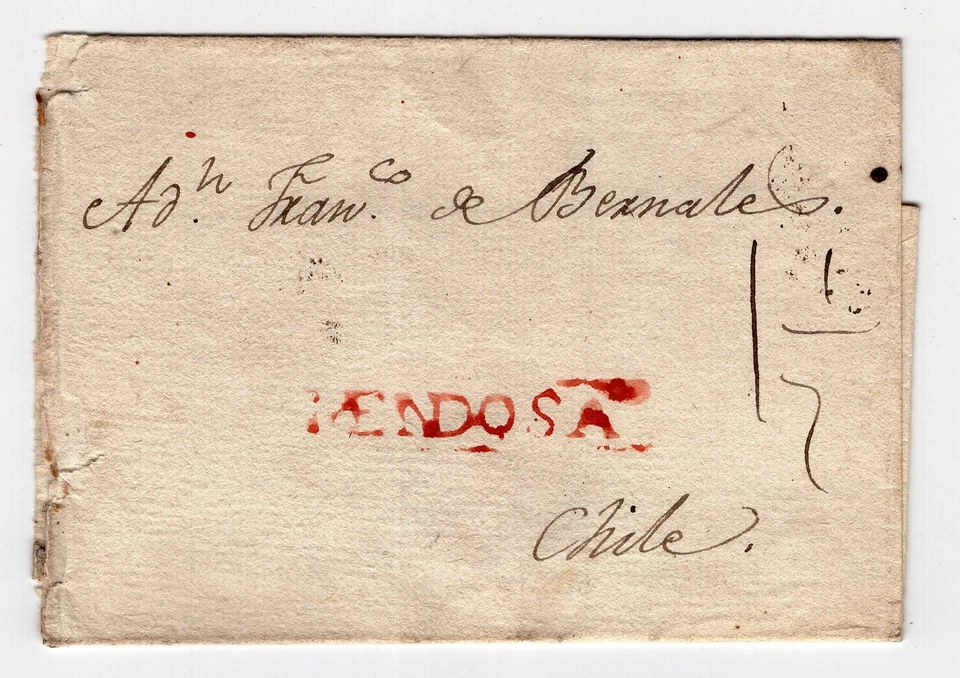 A dn. Franco. de Bernales.
1 1/2
MENDOSA
Chile.